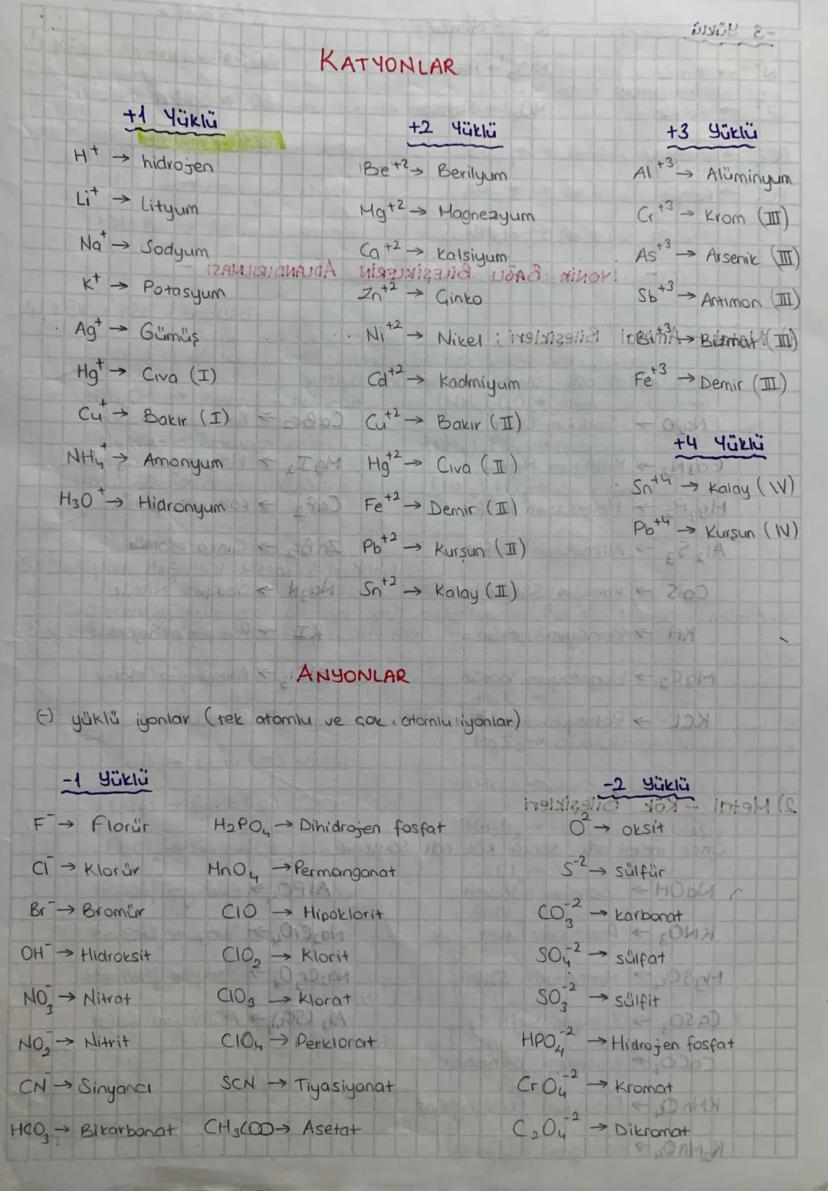 KATYONLAR
+1 Yüklü
H⁺ → hidrojen
Li⁺ → Lityum
Na⁺ → Sodyum
K⁺ → Potasyum
Ag⁺ → Gümüş
Hg⁺ → Cıva (I)
Cu⁺ → Bakır (I)
NH₄⁺ → Amonyum
H₃O⁺ → Hidronyum
+2 Yüklü
Be⁺² → Berilyum
Mg⁺² → Magnezyum
Ca⁺² → Kalsiyum
Zn⁺² → Ginko
Ni⁺² → Nikel
Cd⁺² → Kadmiyum
Cu⁺² → Bakır (II)
Hg⁺² → Cıva (II)
Fe⁺² → Demir (II)
Pb⁺² → Kurşun (II)
Sn⁺² → Kalay (II)
+3 Yüklü
Al⁺³ → Alüminyum
Cr⁺³ → Krom (III)
As⁺³ → Arsenik (III)
Sb⁺³ → Antimon (III)
Bi⁺³ → Bizmut (III)
Fe⁺³ → Demir (III)
+4 Yüklü
Sn⁺⁴ → Kalay (IV)
Pb⁺⁴ → Kurşun (IV)
ANYONLAR
(-) yüklü iyonlar (tek atomlu ve çok atomlu iyonlar)
-1 Yüklü
F⁻ → Florür
Cl⁻ → Klorür
Br⁻ → Bromür
OH⁻ → Hidroksit
NO₃⁻ → Nitrat
NO₂⁻ → Nitrit
CN⁻ → Sinyancı
HCO₃⁻ → Bikarbonat
H₂PO₄ → Dihidrojen fosfat
MnO₄ → Permanganat
ClO → Hipoklorit
ClO₂ → Klorit
ClO₃ → Klorat
ClO₄ → Perklorat
SCN → Tiyasiyanat
CH₃COO → Asetat
-2 Yüklü
O⁻² → oksit
S⁻² → sülfür
CO₃⁻² → karbonat
SO₄⁻² → sülfat
SO₃⁻² → sülfit
HPO₄⁻² → Hidrojen fosfat
CrO₄⁻² → Kromat
C₂O₄⁻² → Dikromat